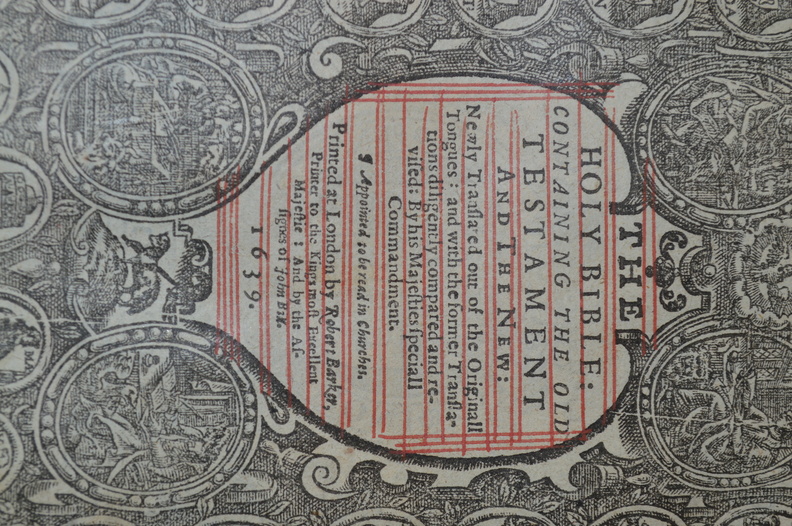 THE
HOLY BIBLE:
CONTAINING THE OLD
TESTAMENT
AND THE NEW:
Newly Tranſlated out of the Originall
Tongues: and with the former Tranſla-
tions diligently compared and re-
viſed: By his Majeſties ſpeciall
Commandment.
¶ Appointed to be read in Churches.
Printed at London by Robert Barker,
Printer to the Kings moſt Excellent
Majeſtie: And by the Aſ-
ſignes of John Bill.
1639.